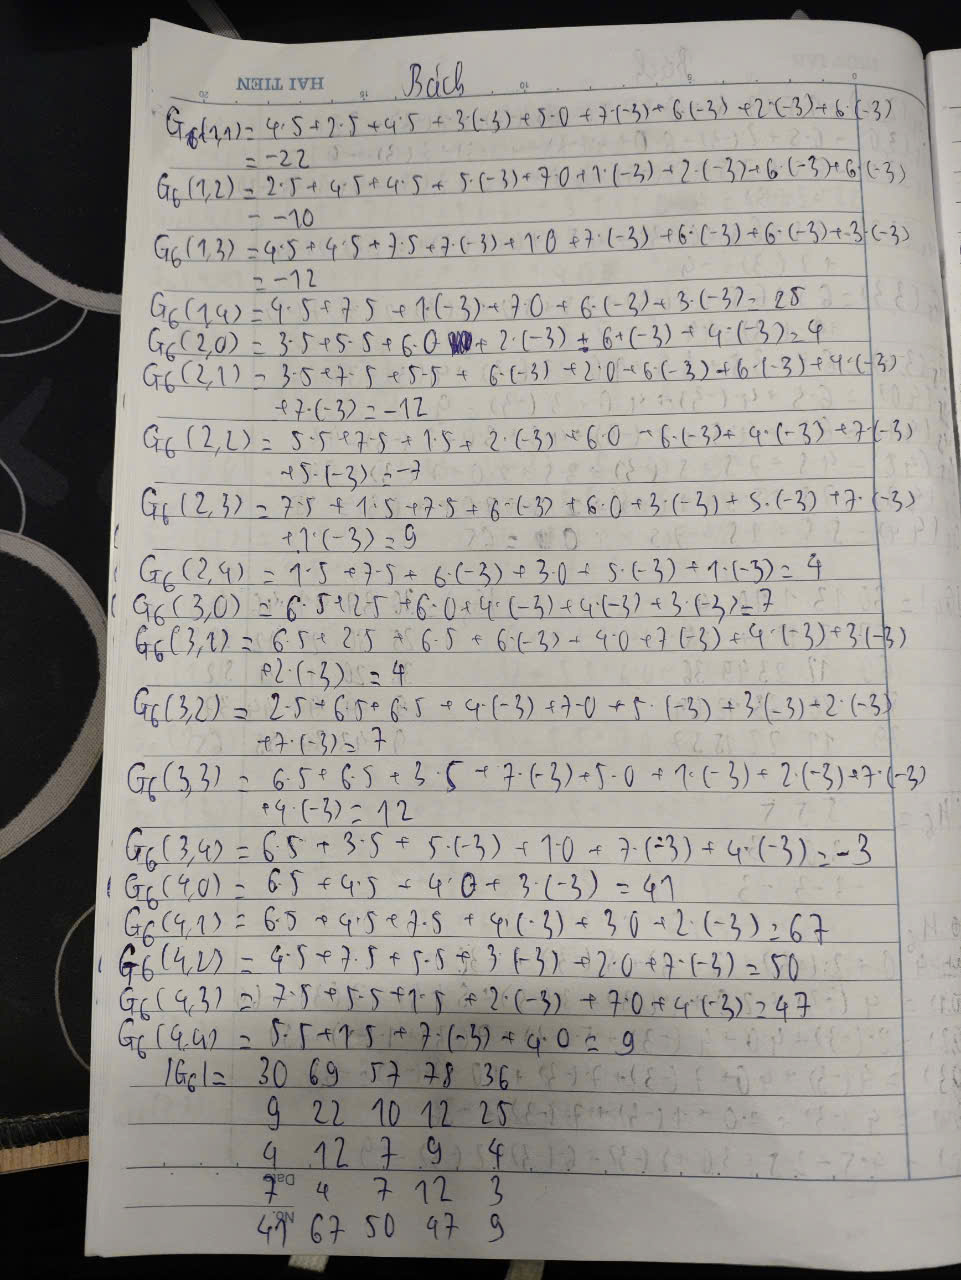 HAI TIEN
Bách
20 15 10 5 0
G6(1,1) = 4·5 + 2·5 + 4·5 + 3·(-3) + 5·0 + 7·(-3) + 6·(-3) + 2·(-3) + 6·(-3)
= -22
G6(1,2) = 2·5 + 4·5 + 4·5 + 5·(-3) + 7·0 + 1·(-3) + 2·(-3) + 6·(-3) + 6·(-3)
= -10
G6(1,3) = 4·5 + 4·5 + 7·5 + 7·(-3) + 1·0 + 7·(-3) + 6·(-3) + 6·(-3) + 3·(-3)
= -12
G6(1,4) = 4·5 + 7·5 + 1·(-3) + 7·0 + 6·(-3) + 3·(-3) = 25
G6(2,0) = 3·5 + 5·5 + 6·0 + 2·(-3) + 6·(-3) + 4·(-3) = 4
G6(2,1) = 3·5 + 7·5 + 5·5 + 6·(-3) + 2·0 + 6·(-3) + 6·(-3) + 4·(-3)
+ 7·(-3) = -12
G6(2,2) = 5·5 + 7·5 + 1·5 + 2·(-3) + 6·0 + 6·(-3) + 4·(-3) + 7·(-3)
+ 5·(-3) = -7
G6(2,3) = 7·5 + 1·5 + 7·5 + 6·(-3) + 6·0 + 3·(-3) + 5·(-3) + 7·(-3)
+ 1·(-3) = 9
G6(2,4) = 1·5 + 7·5 + 6·(-3) + 3·0 + 5·(-3) + 1·(-3) = 4
G6(3,0) = 6·5 + 2·5 + 6·0 + 4·(-3) + 4·(-3) + 3·(-3) = 7
G6(3,1) = 6·5 + 2·5 + 6·5 + 6·(-3) + 4·0 + 7·(-3) + 4·(-3) + 3·(-3)
+ 2·(-3) = 4
G6(3,2) = 2·5 + 6·5 + 6·5 + 4·(-3) + 7·0 + 5·(-3) + 3·(-3) + 2·(-3)
+ 7·(-3) = 7
G6(3,3) = 6·5 + 6·5 + 3·5 + 7·(-3) + 5·0 + 1·(-3) + 2·(-3) + 7·(-3)
+ 4·(-3) = 12
G6(3,4) = 6·5 + 3·5 + 5·(-3) + 1·0 + 7·(-3) + 4·(-3) = -3
G6(4,0) = 6·5 + 4·5 + 4·0 + 3·(-3) = 41
G6(4,1) = 6·5 + 4·5 + 7·5 + 4·(-3) + 3·0 + 2·(-3) = 67
G6(4,2) = 4·5 + 7·5 + 5·5 + 3·(-3) + 2·0 + 7·(-3) = 50
G6(4,3) = 7·5 + 5·5 + 1·5 + 2·(-3) + 7·0 + 4·(-3) = 47
G6(4,4) = 5·5 + 1·5 + 7·(-3) + 4·0 = 9
|G6| = 30 69 57 78 36
9 22 10 12 25
4 12 7 9 4
Date
7 4 7 12 3
No.
41 67 50 47 9